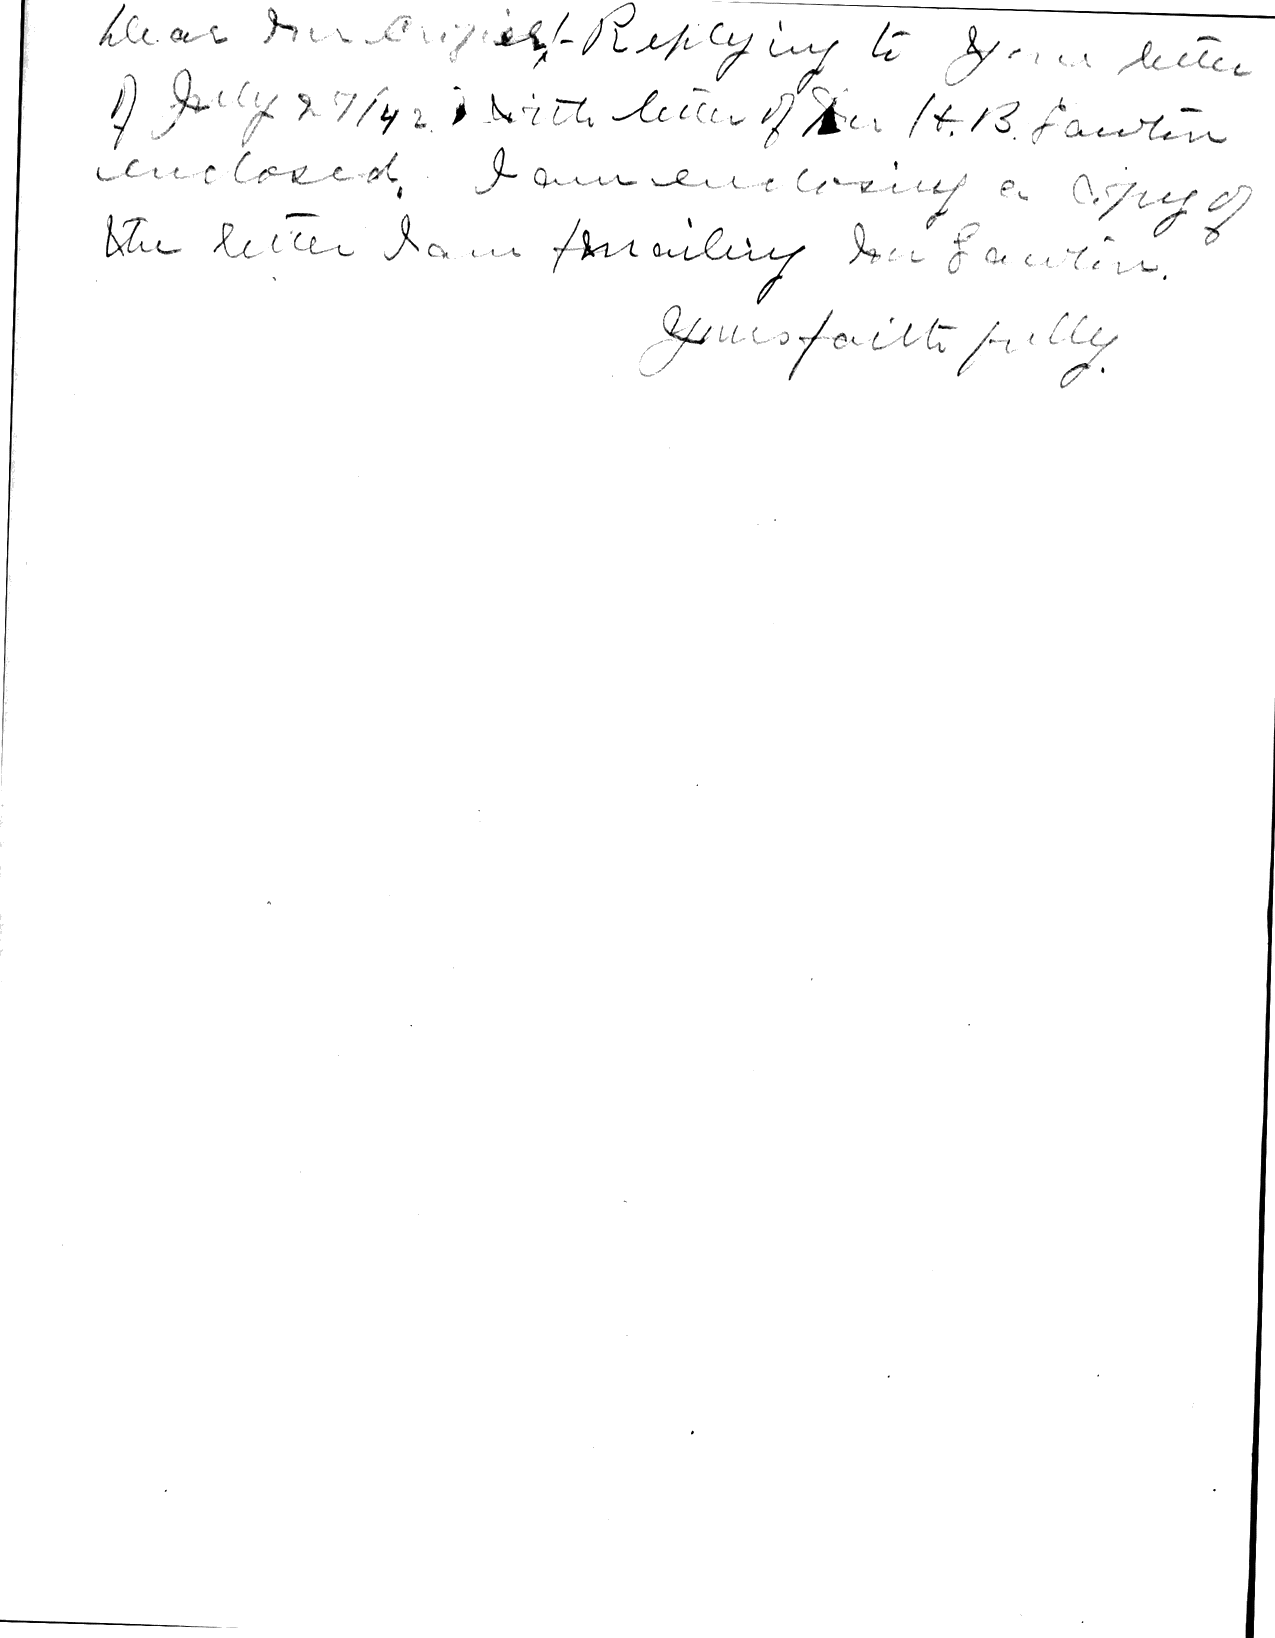 Dear Mr :- Replying to your letter
of July 27/42 with letter of Mr H.B. Sawtin
enclosed, I am enclosing a copy of
the letter I am mailing Mr Sawtin.
Yours faithfully.